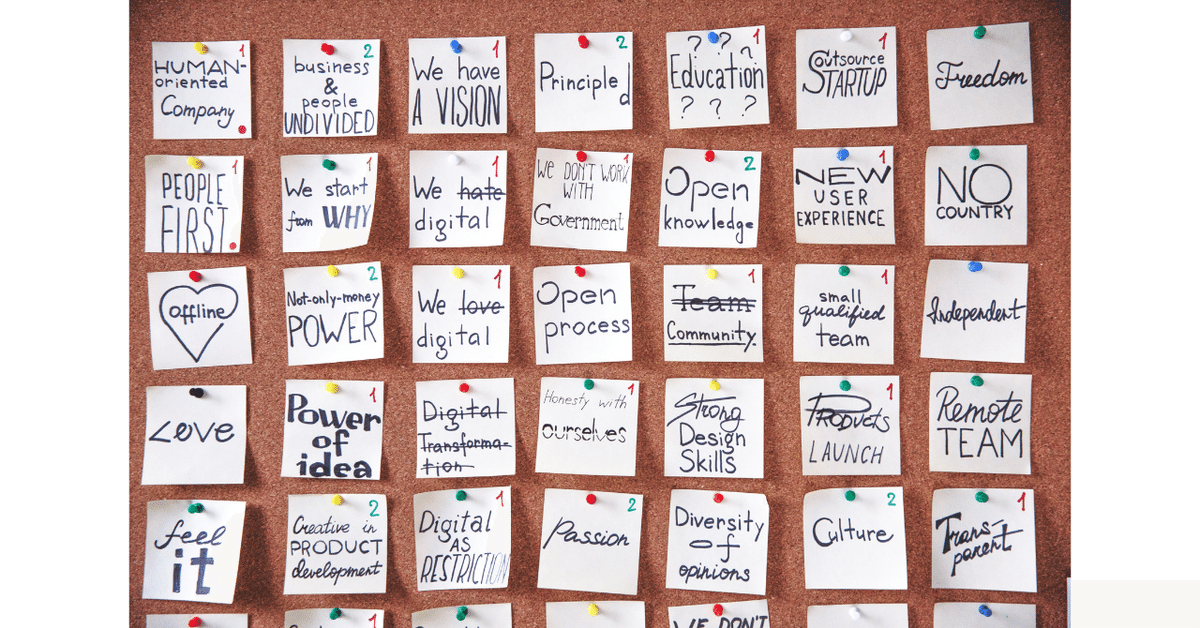 1
HUMAN-
oriented
Company
2
business
&
people
UNDIVIDED
1
We have
A VISION
2
Principled
1
? ? ?
Education
? ? ?
1
Outsource
STARTUP
Freedom
1
PEOPLE
FIRST
1
We start
from WHY
1
We hate
digital
1
We DON'T WORK
WITH
Government
2
Open
knowledge
1
NEW
USER
EXPERIENCE
NO
COUNTRY
offline
2
Not-only-money
POWER
1
We love
digital
Open
process
1
Team
Community.
1
small
qualified
team
Independent
Love
1
Power
of
idea
Digital
Transforma-
tion
1
Honesty with
ourselves
Strong
Design
Skills
1
PRODUCTS
LAUNCH
Remote
TEAM
feel
it
2
Creative in
PRODUCT
development
1
Digital
AS
RESTRICTION
2
Passion
Diversity
of
opinions
2
Culture
1
Trans-
parent
1
WE DON'T